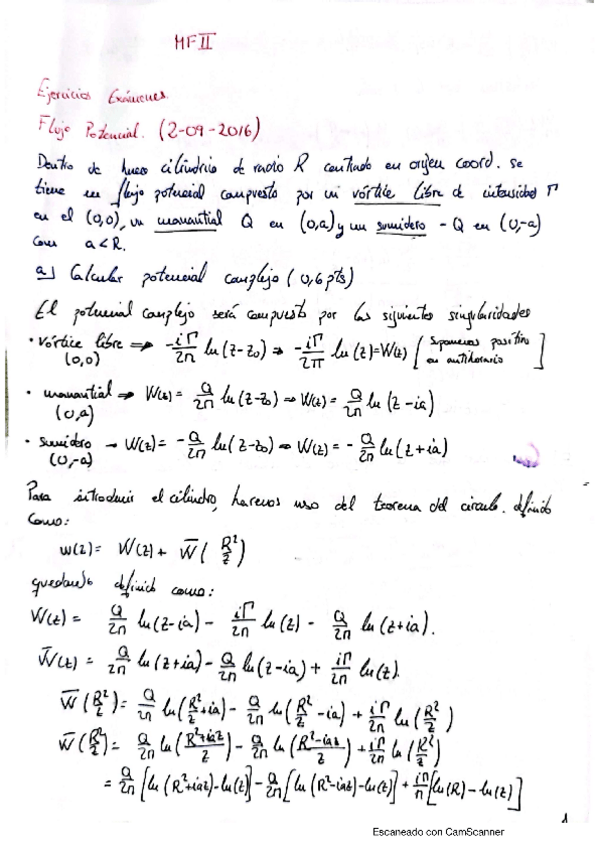 MFII
Ejercicios Exámenes.
Flujo Potencial. (2-09-2016)
Dentro de hueco cilíndrico de radio R centrado en origen coord. se
tiene un flujo potencial compuesto por un vórtice libre de intensidad Γ
en el (0,0), un manantial Q en (0,a) y un sumidero -Q en (0,-a)
con a<R.
a) Calcular potencial complejo (0,6 pts)
El potencial complejo será compuesto por las siguientes singularidades
• vórtice libre ⇒ -iΓ/2π ln(z-z₀) ⇒ -iΓ/2π ln(z)=W(z) [suponemos positivo
(0,0) en antihorario]
• manantial ⇒ W(z)= Q/2π ln(z-z₀) ⇒ W(z)= Q/2π ln(z-ia)
(0,a)
• sumidero → W(z)= -Q/2π ln(z-z₀) ⇒ W(z)= -Q/2π ln(z+ia)
(0,-a)
Para introducir el cilindro, haremos uso del teorema del círculo. definido
como:
w(z)= W(z)+ W̅(R²/z)
quedando definido como:
W(z)= Q/2π ln(z-ia) - iΓ/2π ln(z) - Q/2π ln(z+ia).
W̅(z)= Q/2π ln(z+ia) - Q/2π ln(z-ia) + iΓ/2π ln(z).
W̅(R²/z)= Q/2π ln(R²/z+ia) - Q/2π ln(R²/z-ia) + iΓ/2π ln(R²/z)
W̅(R²/z)= Q/2π ln((R²+iaz)/z) - Q/2π ln((R²-iaz)/z) + iΓ/2π ln(R²/z)
= Q/2π [ln(R²+iaz)-ln(z)] - Q/2π [ln(R²-iaz)-ln(z)] + iΓ/π [ln(R)-ln(z)]
1
Escaneado con CamScanner